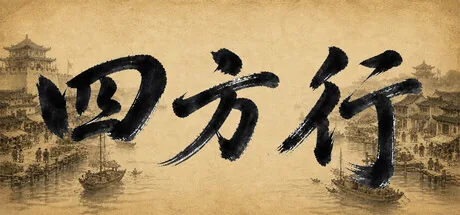 四方行